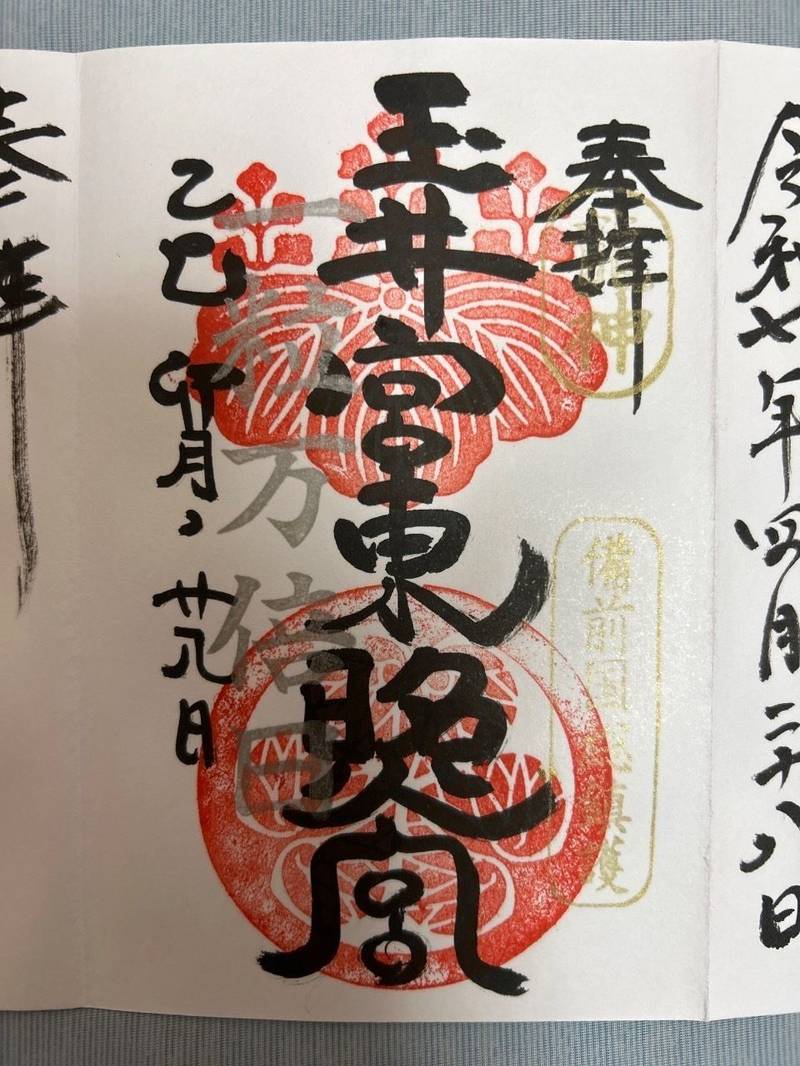 令和七年四月二十八日
奉拝
神
備前国総鎮護
玉井宮東照宮
一粒万倍日
乙巳 卯月 廿八日